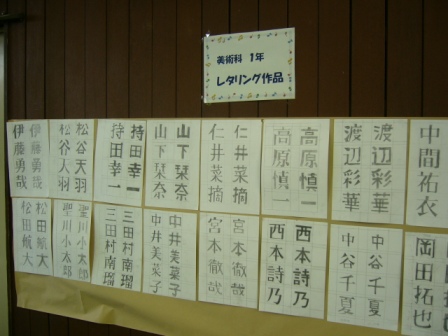 美術科 1年
レタリング作品
伊藤勇哉 伊藤勇哉
松谷天羽 松谷天羽
持田幸一 持田幸一
山下栞奈 山下栞奈
仁井菜摘 仁井菜摘
高原慎一 高原慎一
渡辺彩華 渡辺彩華
中間祐衣
松田航大 松田航大
聖川小太郎 聖川小太郎
三田村南瑠 三田村南瑠
中井美菜子 中井美菜子
宮本徹哉 宮本徹哉
西本詩乃 西本詩乃
中谷千夏 中谷千夏
岡田拓也